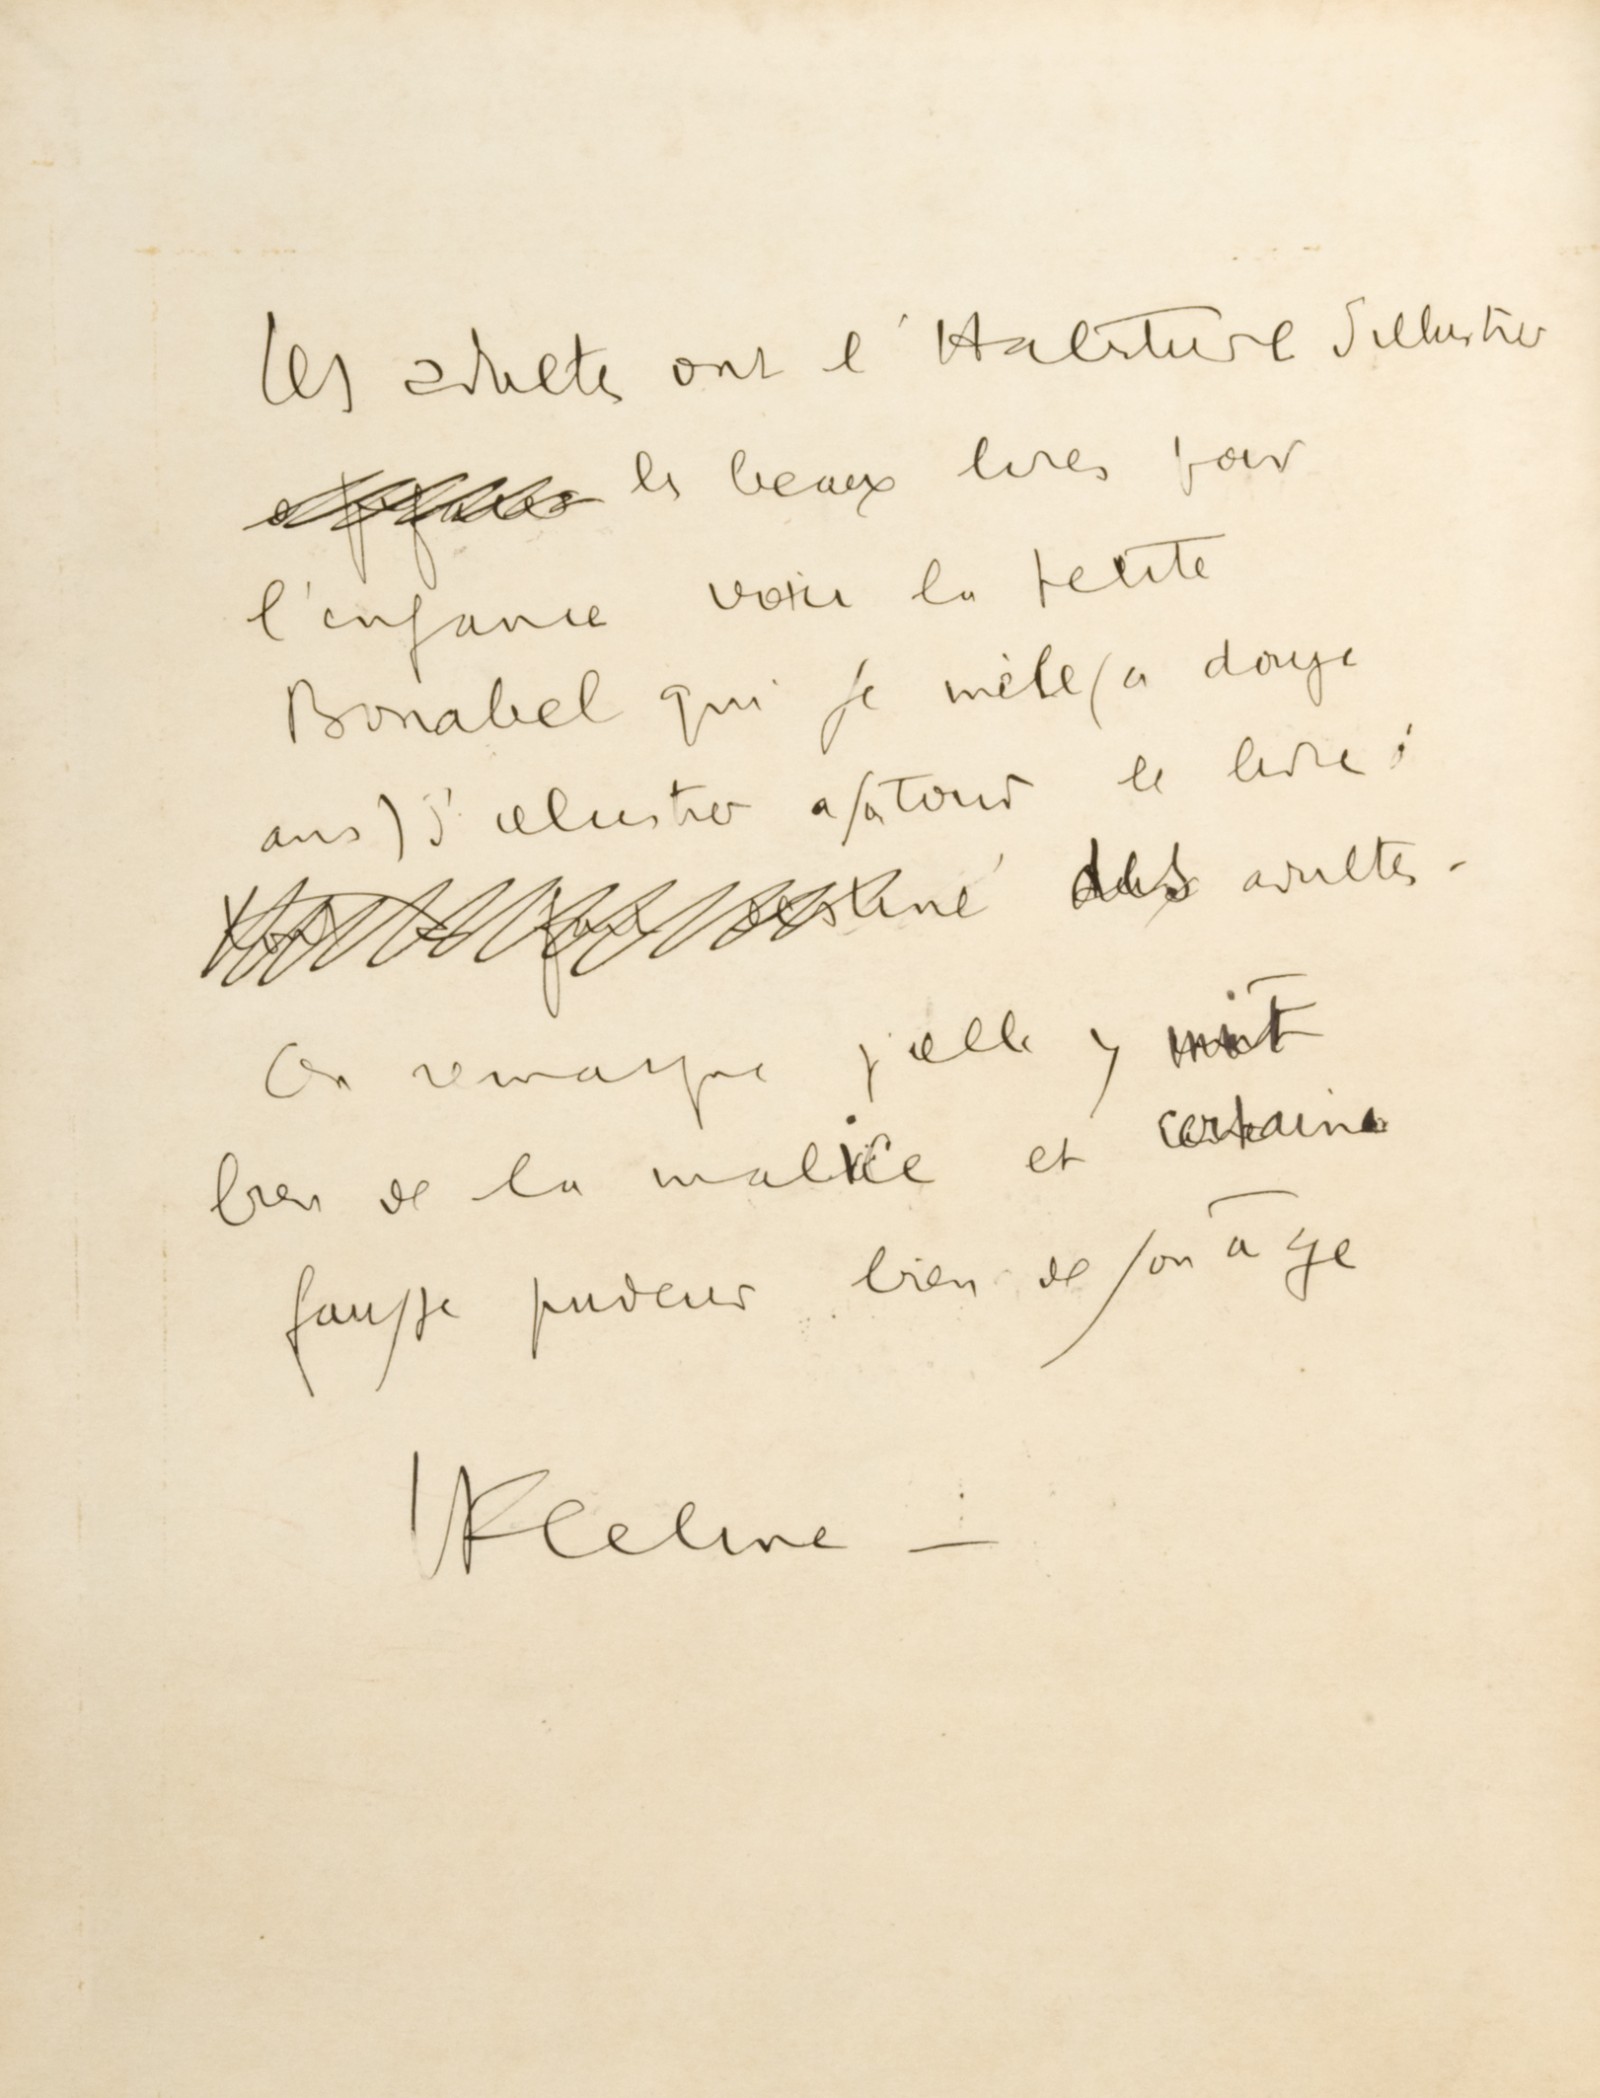 Les adultes ont l'Habitude d'illustrer
les beaux livres pour
l'enfance voici la petite
Bonabel qui se mêle (a douze
ans) d'illustrer a sa tour le livre
destiné des adultes -
On remarque qu'elle y mit
bien de la malice et certaine
fausse pudeur bien de son âge
LF Celine -